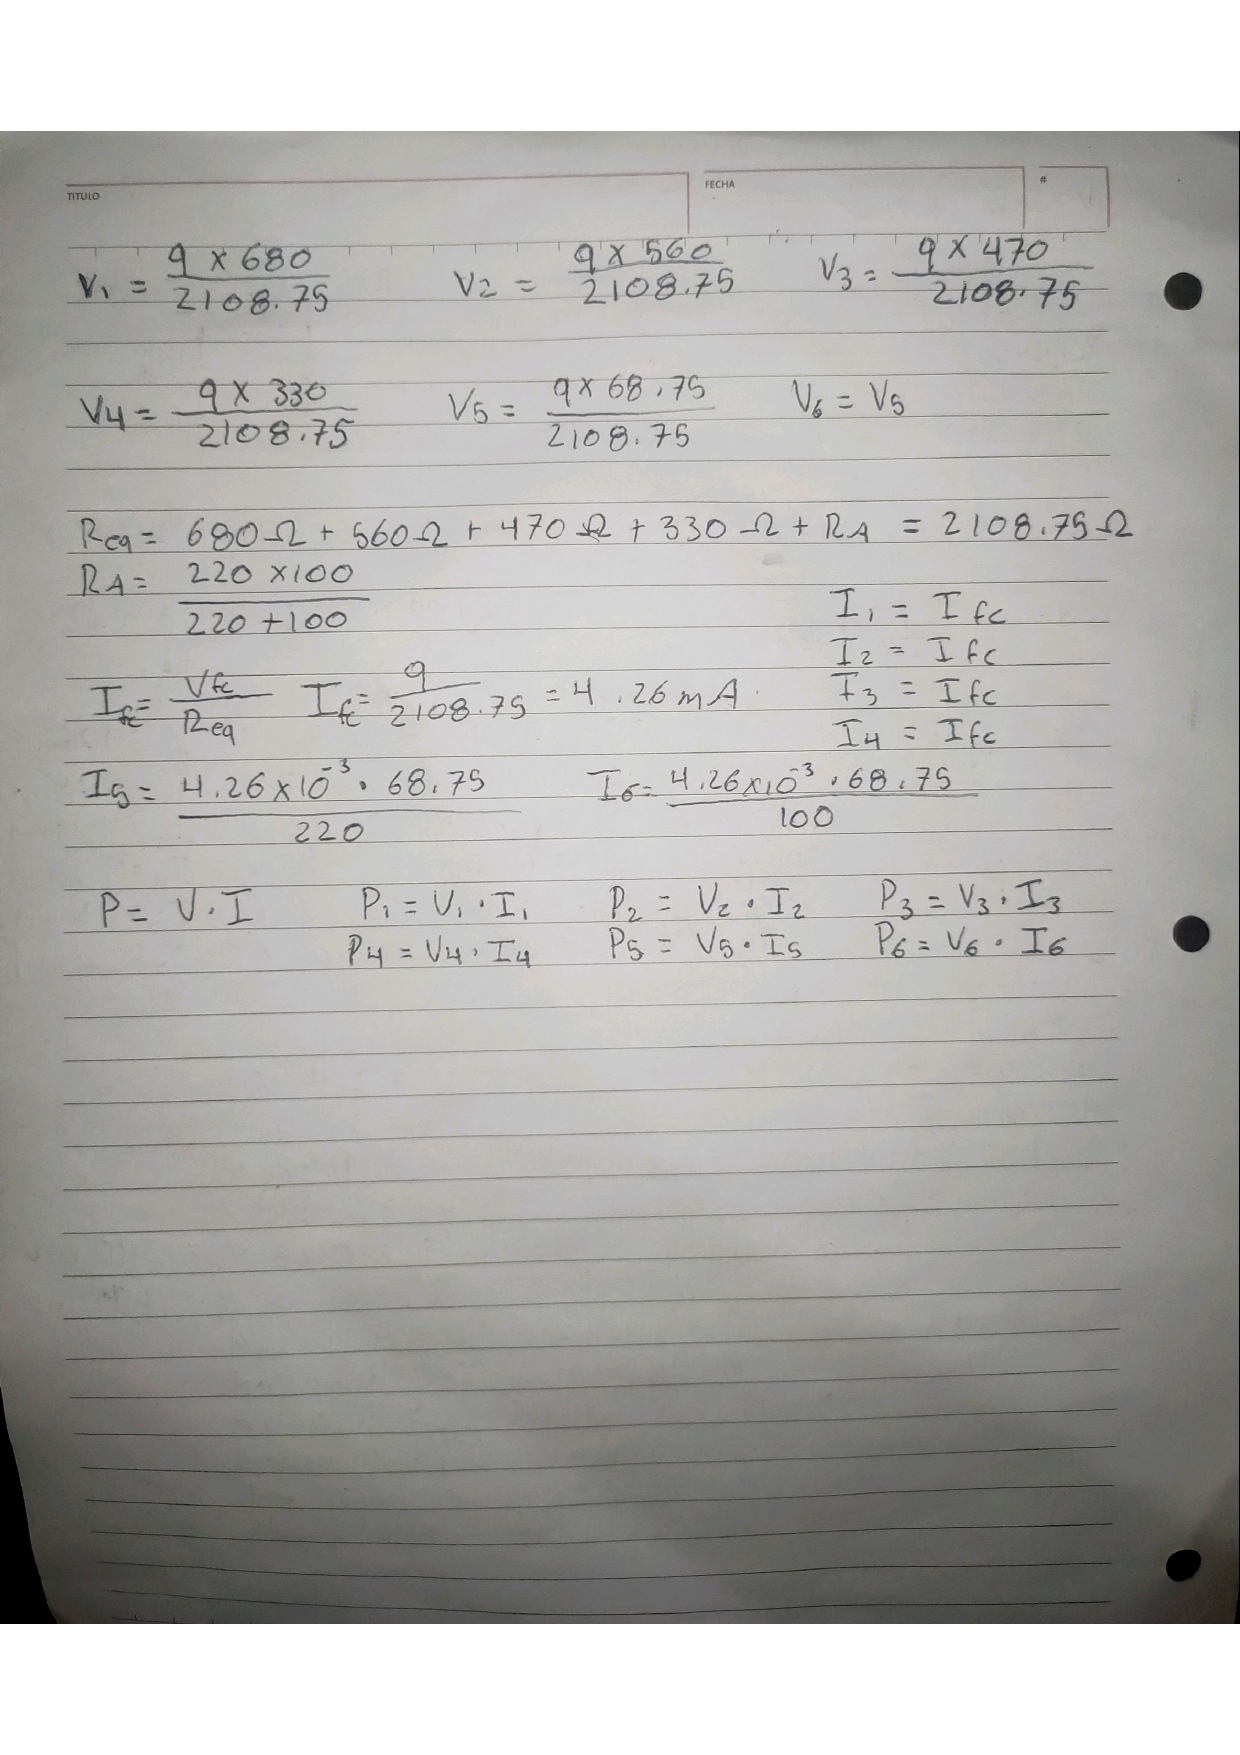 TITULO FECHA #
V1 = 9 x 680 / 2108.75 V2 = 9 x 560 / 2108.75 V3 = 9 x 470 / 2108.75
V4 = 9 x 330 / 2108.75 V5 = 9 x 68.75 / 2108.75 V6 = V5
Req = 680Ω + 560Ω + 470Ω + 330Ω + RA = 2108.75Ω
RA = 220 x 100 / 220 + 100
I1 = Ifc
I2 = Ifc
Ifc = Vfc / Req Ifc = 9 / 2108.75 = 4.26 mA. I3 = Ifc
I4 = Ifc
I5 = 4.26 x 10^-3 · 68.75 / 220 I6 = 4.26 x 10^-3 · 68.75 / 100
P = V·I P1 = V1·I1 P2 = V2·I2 P3 = V3·I3
P4 = V4·I4 P5 = V5·I5 P6 = V6·I6